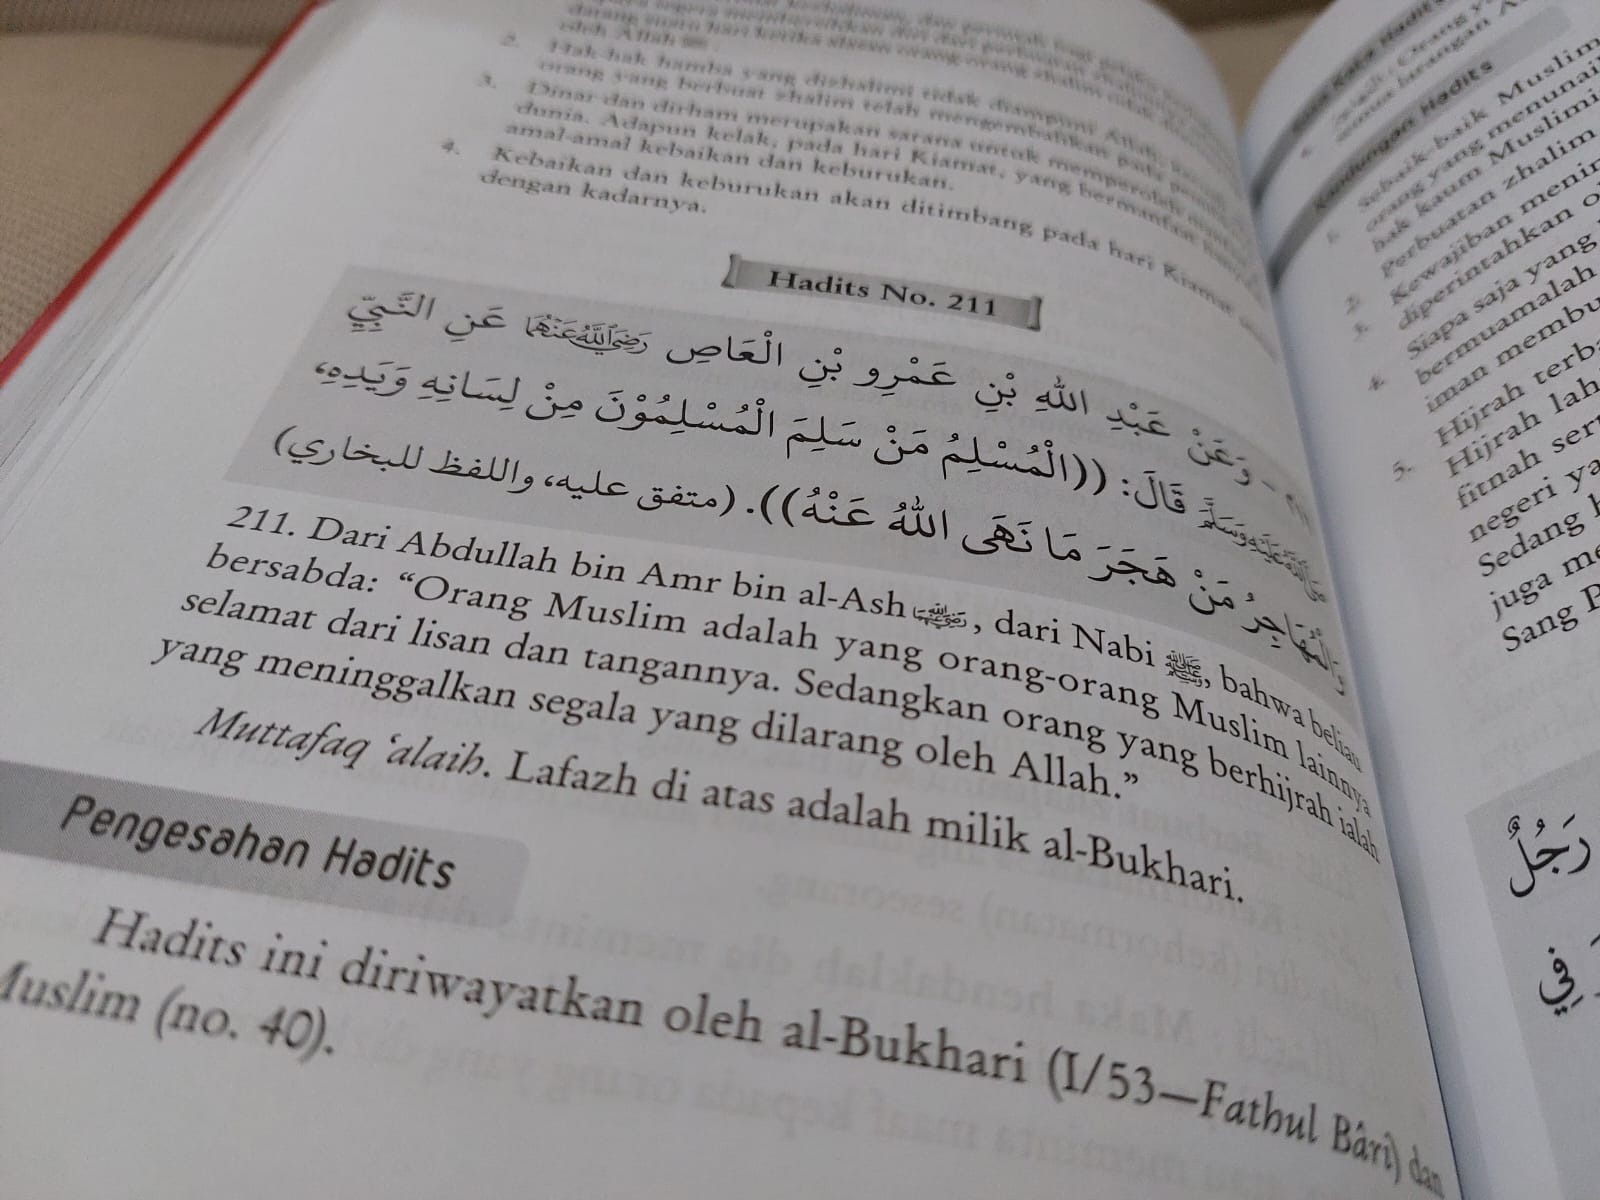 oleh Allah ﷻ.
2. Hak-hak hamba yang dizhalimi tidak diampuni Allah,
orang yang berbuat zhalim telah mengembalikan pada
3. Dinar dan dirham merupakan sarana untuk memperoleh
dunia. Adapun kelak, pada hari Kiamat, yang bermanfaat
amal-amal kebaikan dan keburukan.
4. Kebaikan dan keburukan akan ditimbang pada hari Kiamat
dengan kadarnya.
Hadits No. 211
٢١١ - وَعَنْ عَبْدِ اللهِ بْنِ عَمْرِو بْنِ الْعَاصِ رَضِيَ اللَّهُ عَنْهُمَا عَنِ النَّبِيِّ
صَلَّى اللَّهُ عَلَيْهِ وَسَلَّمَ قَالَ: ((الْمُسْلِمُ مَنْ سَلِمَ الْمُسْلِمُوْنَ مِنْ لِسَانِهِ وَيَدِهِ،
وَالْمُهَاجِرُ مَنْ هَجَرَ مَا نَهَى اللهُ عَنْهُ)). (متفق عليه، واللفظ للبخاري)
211. Dari Abdullah bin Amr bin al-Ash رضي الله عنهما, dari Nabi ﷺ, bahwa beliau
bersabda: “Orang Muslim adalah yang orang-orang Muslim lainnya
selamat dari lisan dan tangannya. Sedangkan orang yang berhijrah ialah
yang meninggalkan segala yang dilarang oleh Allah.”
Muttafaq ‘alaih. Lafazh di atas adalah milik al-Bukhari.
Pengesahan Hadits
Hadits ini diriwayatkan oleh al-Bukhari (I/53—Fathul Bâri) dan
Muslim (no. 40).
Kandungan Hadits
1. Sebaik-baik Muslim
orang yang menunai
hak kaum Muslimi
2. Perbuatan zhalim
3. Kewajiban menin
diperintahkan o
4. Siapa saja yang
bermuamalah
iman membu
5. Hijrah terba
Hijrah lah
fitnah ser
negeri ya
Sedang
juga me
Sang P
رَجُلٌ
فِي